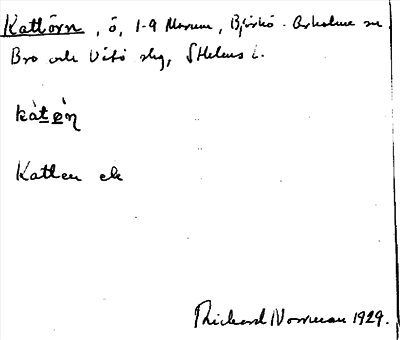 Kattörn, ö, 1-9 Marum, Björkö-Arholma sn
Bro och Vätö skg, Sthlms l.
kàtǝ̀ṇ
Katten ek
Rickard Norrman 1929.